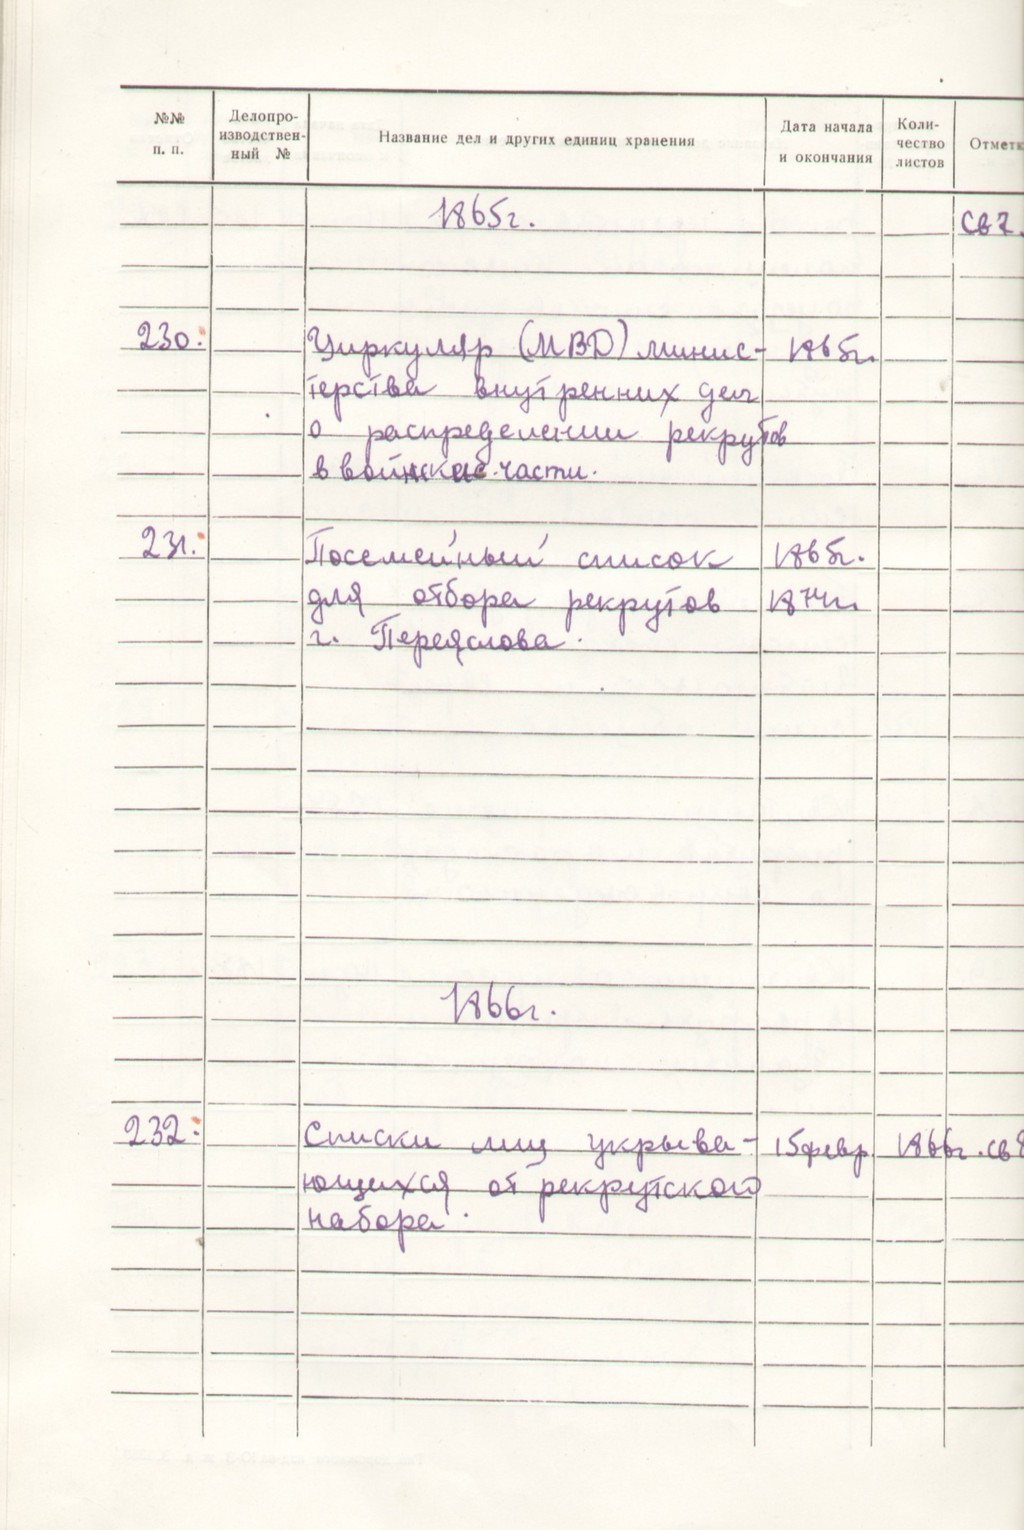 №№ п. п.
Делопро-
изводствен-
ный №
Название дел и других единиц хранения
Дата начала
и окончания
Коли-
чество
листов
Отметк
1865г.
св 7.
230. Циркуляр (МВД) минис- 1865г.
терства внутренних дел
о распределении рекрутов
в войнские части.
231. Посемейный список 1865г.
для отбора рекрутов 1874г.
г. Переяслова.
1866г.
232. Списки лиц укрыва- 15 февр. 1866г. св 8
ющихся от рекрутского
набора.